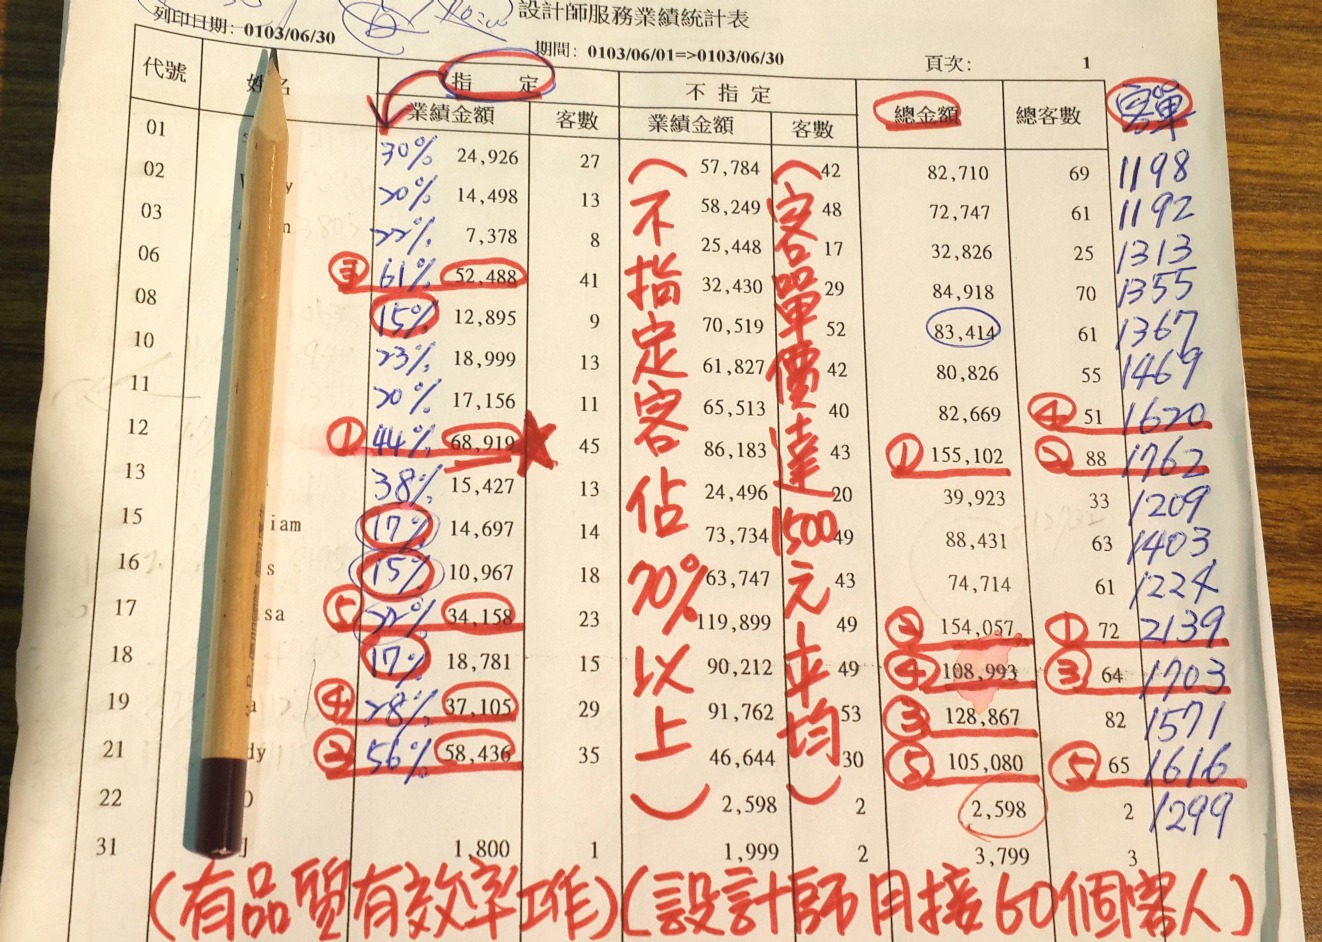 設計師服務業績統計表
列印日期: 0103/06/30
期間: 0103/06/01=>0103/06/30 頁次: 1
代號 姓名 指 定 不 指 定 總金額 總客數 客單
業績金額 客數 業績金額 客數
01 30% 24,926 27 57,784 42 82,710 69 1198
02 y 20% 14,498 13 58,249 48 72,747 61 1192
03 n 22% 7,378 8 25,448 17 32,826 25 1313
06 ③ 61% 52,488 41 32,430 29 84,918 70 1355
08 15% 12,895 9 70,519 52 83,414 61 1367
10 23% 18,999 13 61,827 42 80,826 55 1469
11 20% 17,156 11 65,513 40 82,669 ④ 51 1620
12 ① 44% 68,919 ★ 45 86,183 43 ① 155,102 ② 88 1762
13 38% 15,427 13 24,496 20 39,923 33 1209
15 iam 17% 14,697 14 73,734 49 88,431 63 1403
16 s 15% 10,967 18 63,747 43 74,714 61 1224
17 sa ⑤ 22% 34,158 23 119,899 49 ② 154,057 ① 72 2139
18 17% 18,781 15 90,212 49 ④ 108,993 ③ 64 1703
19 a ④ 28% 37,105 29 91,762 53 ③ 128,867 82 1571
21 dy ② 56% 58,436 35 46,644 30 ⑤ 105,080 ⑤ 65 1616
22 2,598 2 2,598 2 1299
31 1,800 1 1,999 2 3,799 3
(不指定客佔70%以上)
(客單價達1500元平均)
(有品質有效率工作)(設計師月接60個客人)